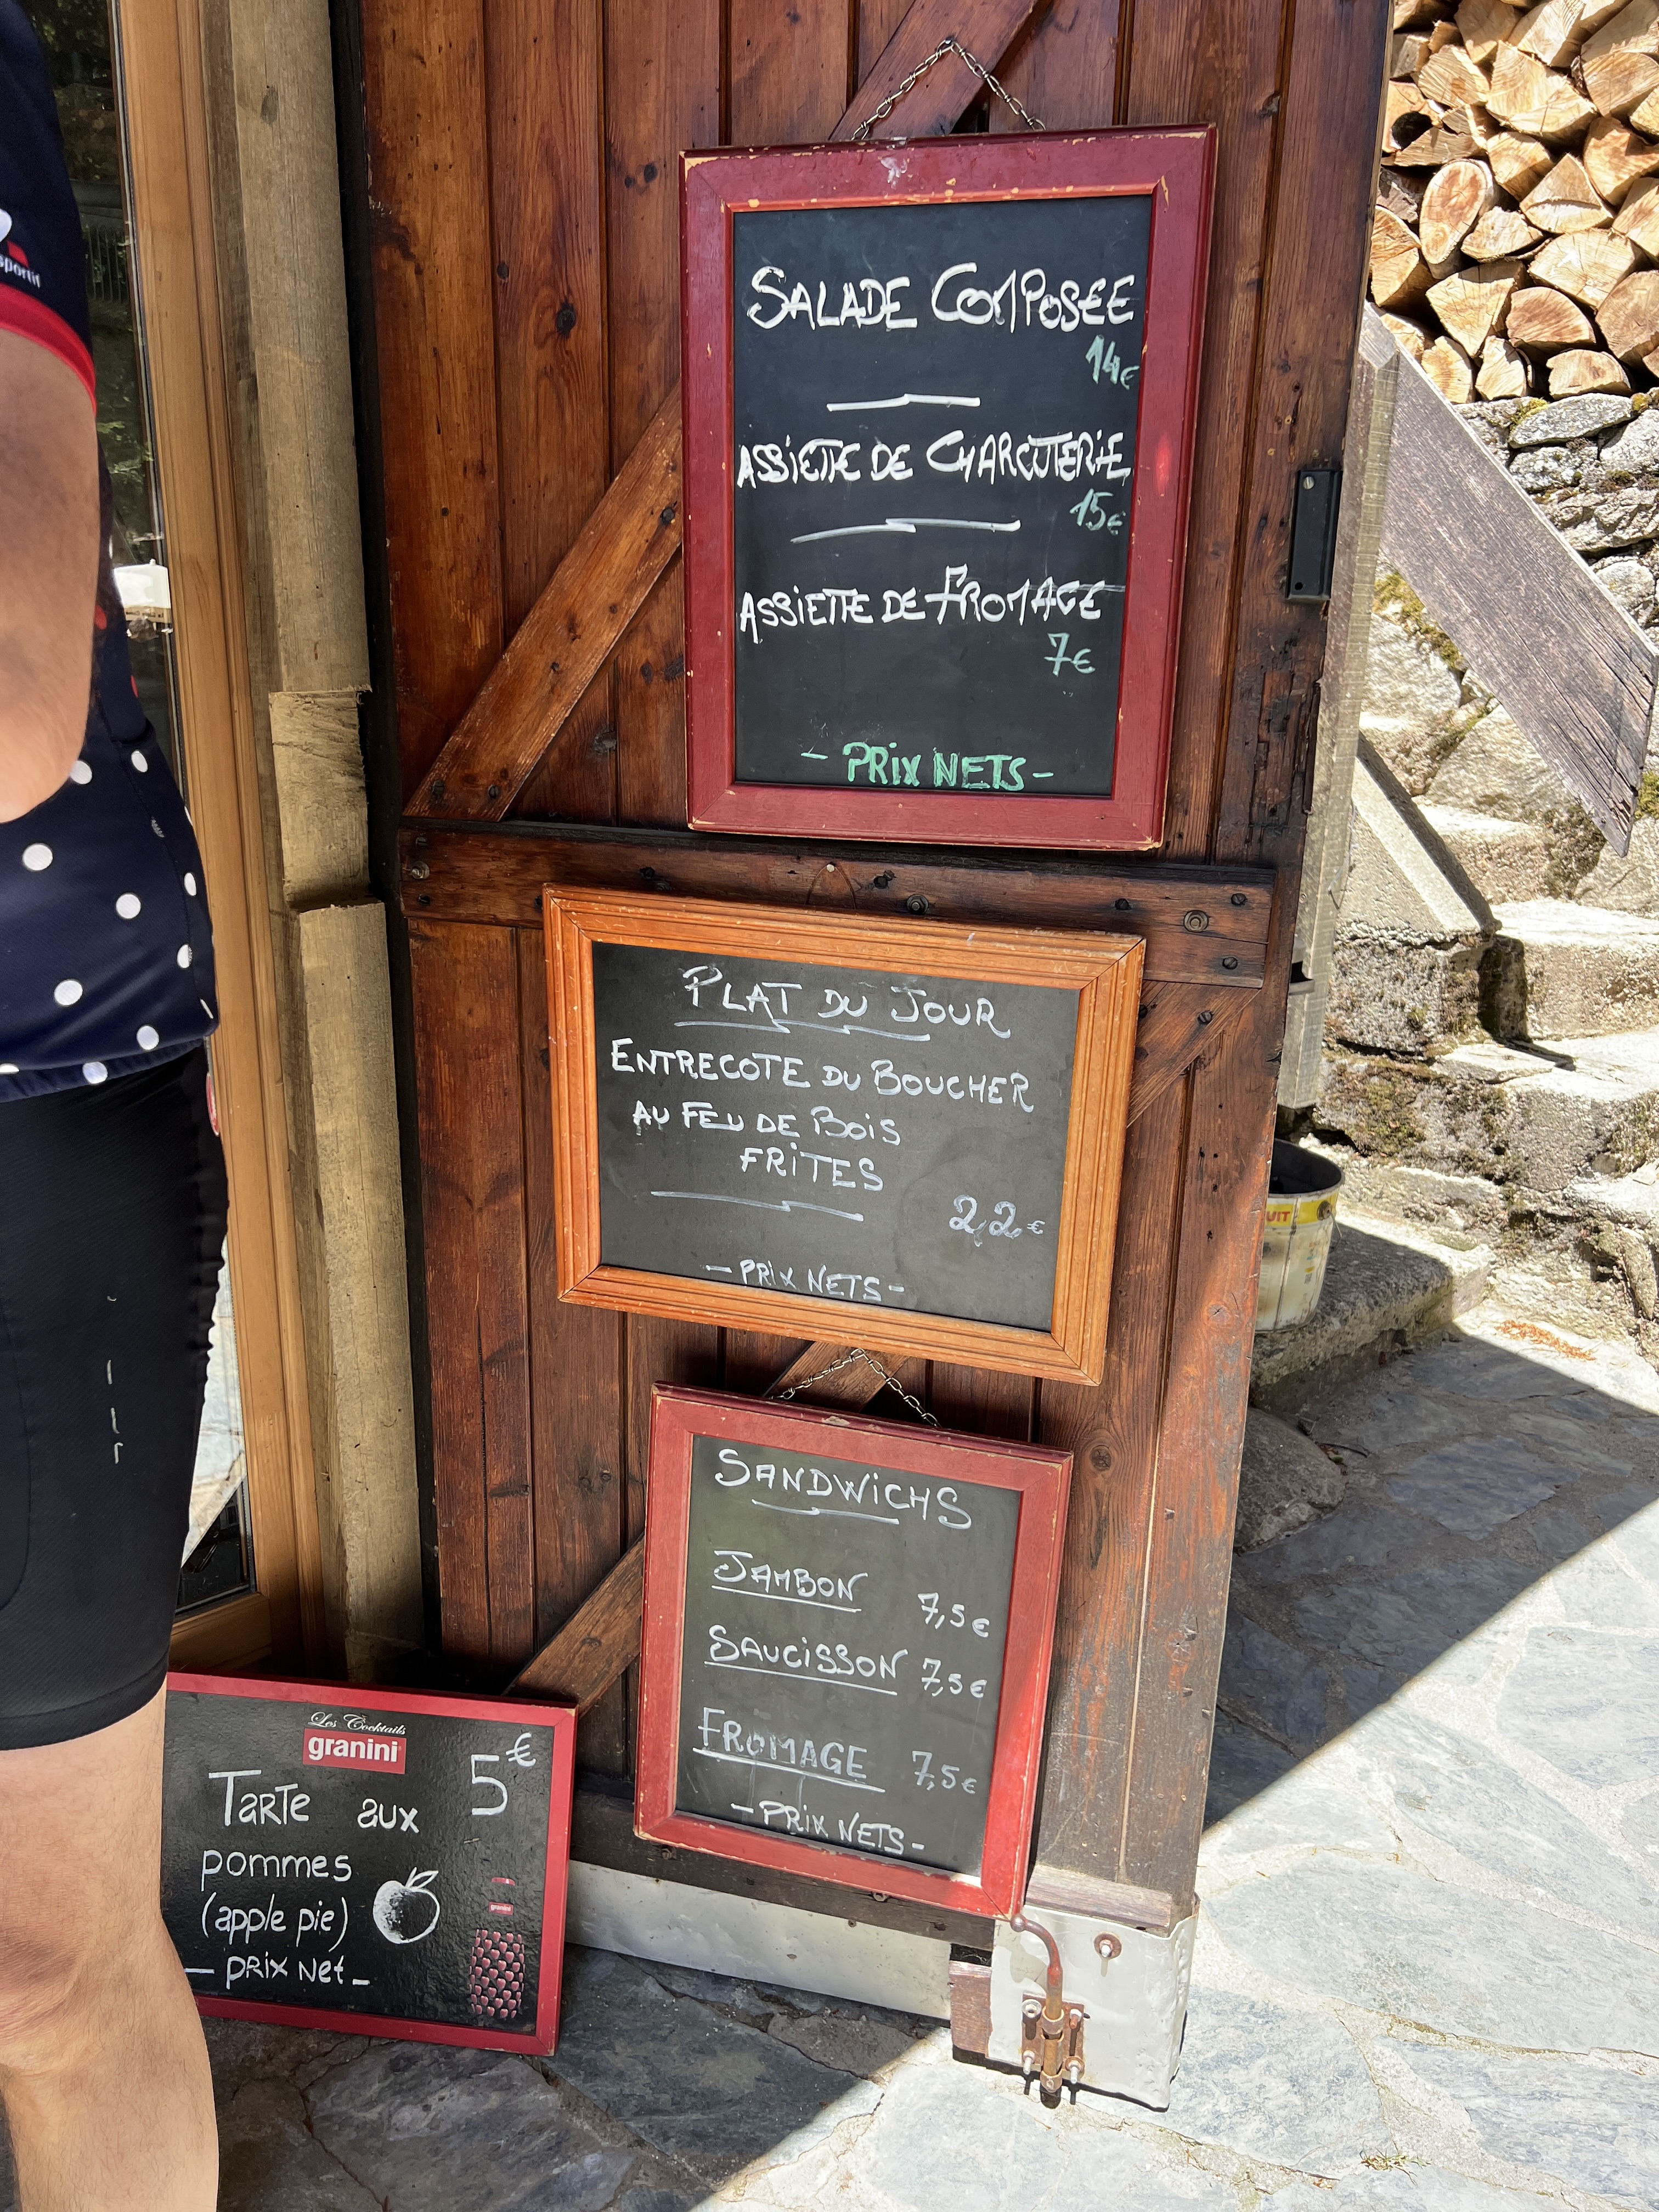 SALADE COMPOSEE
14€
ASSIETTE DE CHARCUTERIE
15€
ASSIETTE DE FROMAGE
7€
- PRIX NETS -
PLAT DU JOUR
ENTRECOTE DU BOUCHER
AU FEU DE BOIS
FRITES
22€
- PRIX NETS -
SANDWICHS
JAMBON 7,5€
SAUCISSON 7,5€
FROMAGE 7,5€
- PRIX NETS -
Les Cocktails
granini
5€
TARTE aux
pommes
(apple pie)
- PRIX Net -
granini
sportif
UIT